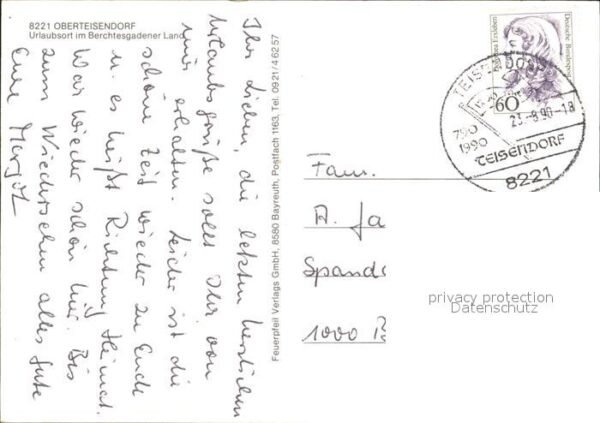 8221 OBERTEISENDORF
Urlaubsort im Berchtesgadener Land
Ihr Lieben, die letzten herzlichen
Urlaubsgrüße sollt Ihr von
mir erhalten. Leider ist die
schöne Zeit wieder zu Ende
u. es heißt Richtung Heimat.
War wieder schön hier. Bis
zum Wiedersehen alles Gute
Eure Margot
Feuerpfeil Verlags GmbH, 8580 Bayreuth, Postfach 1163, Tel. 0921/46257
Dorothea Erxleben
Deutsche Bundespost
60
TEISENDORF
790
1990
23.-8.90-18
TEISENDORF
8221
Fam.
A. Ja
Spand
1000 B
privacy protection
Datenschutz